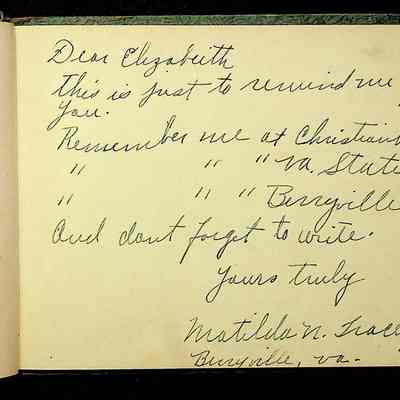 Dear Elizabeith
this is just to remind me
you.
Remember me at Christian
" " " Va. State
" " " Berryville
And dont forget to write.
Yours truly
Matilda N. Tracey
Berryville, Va.